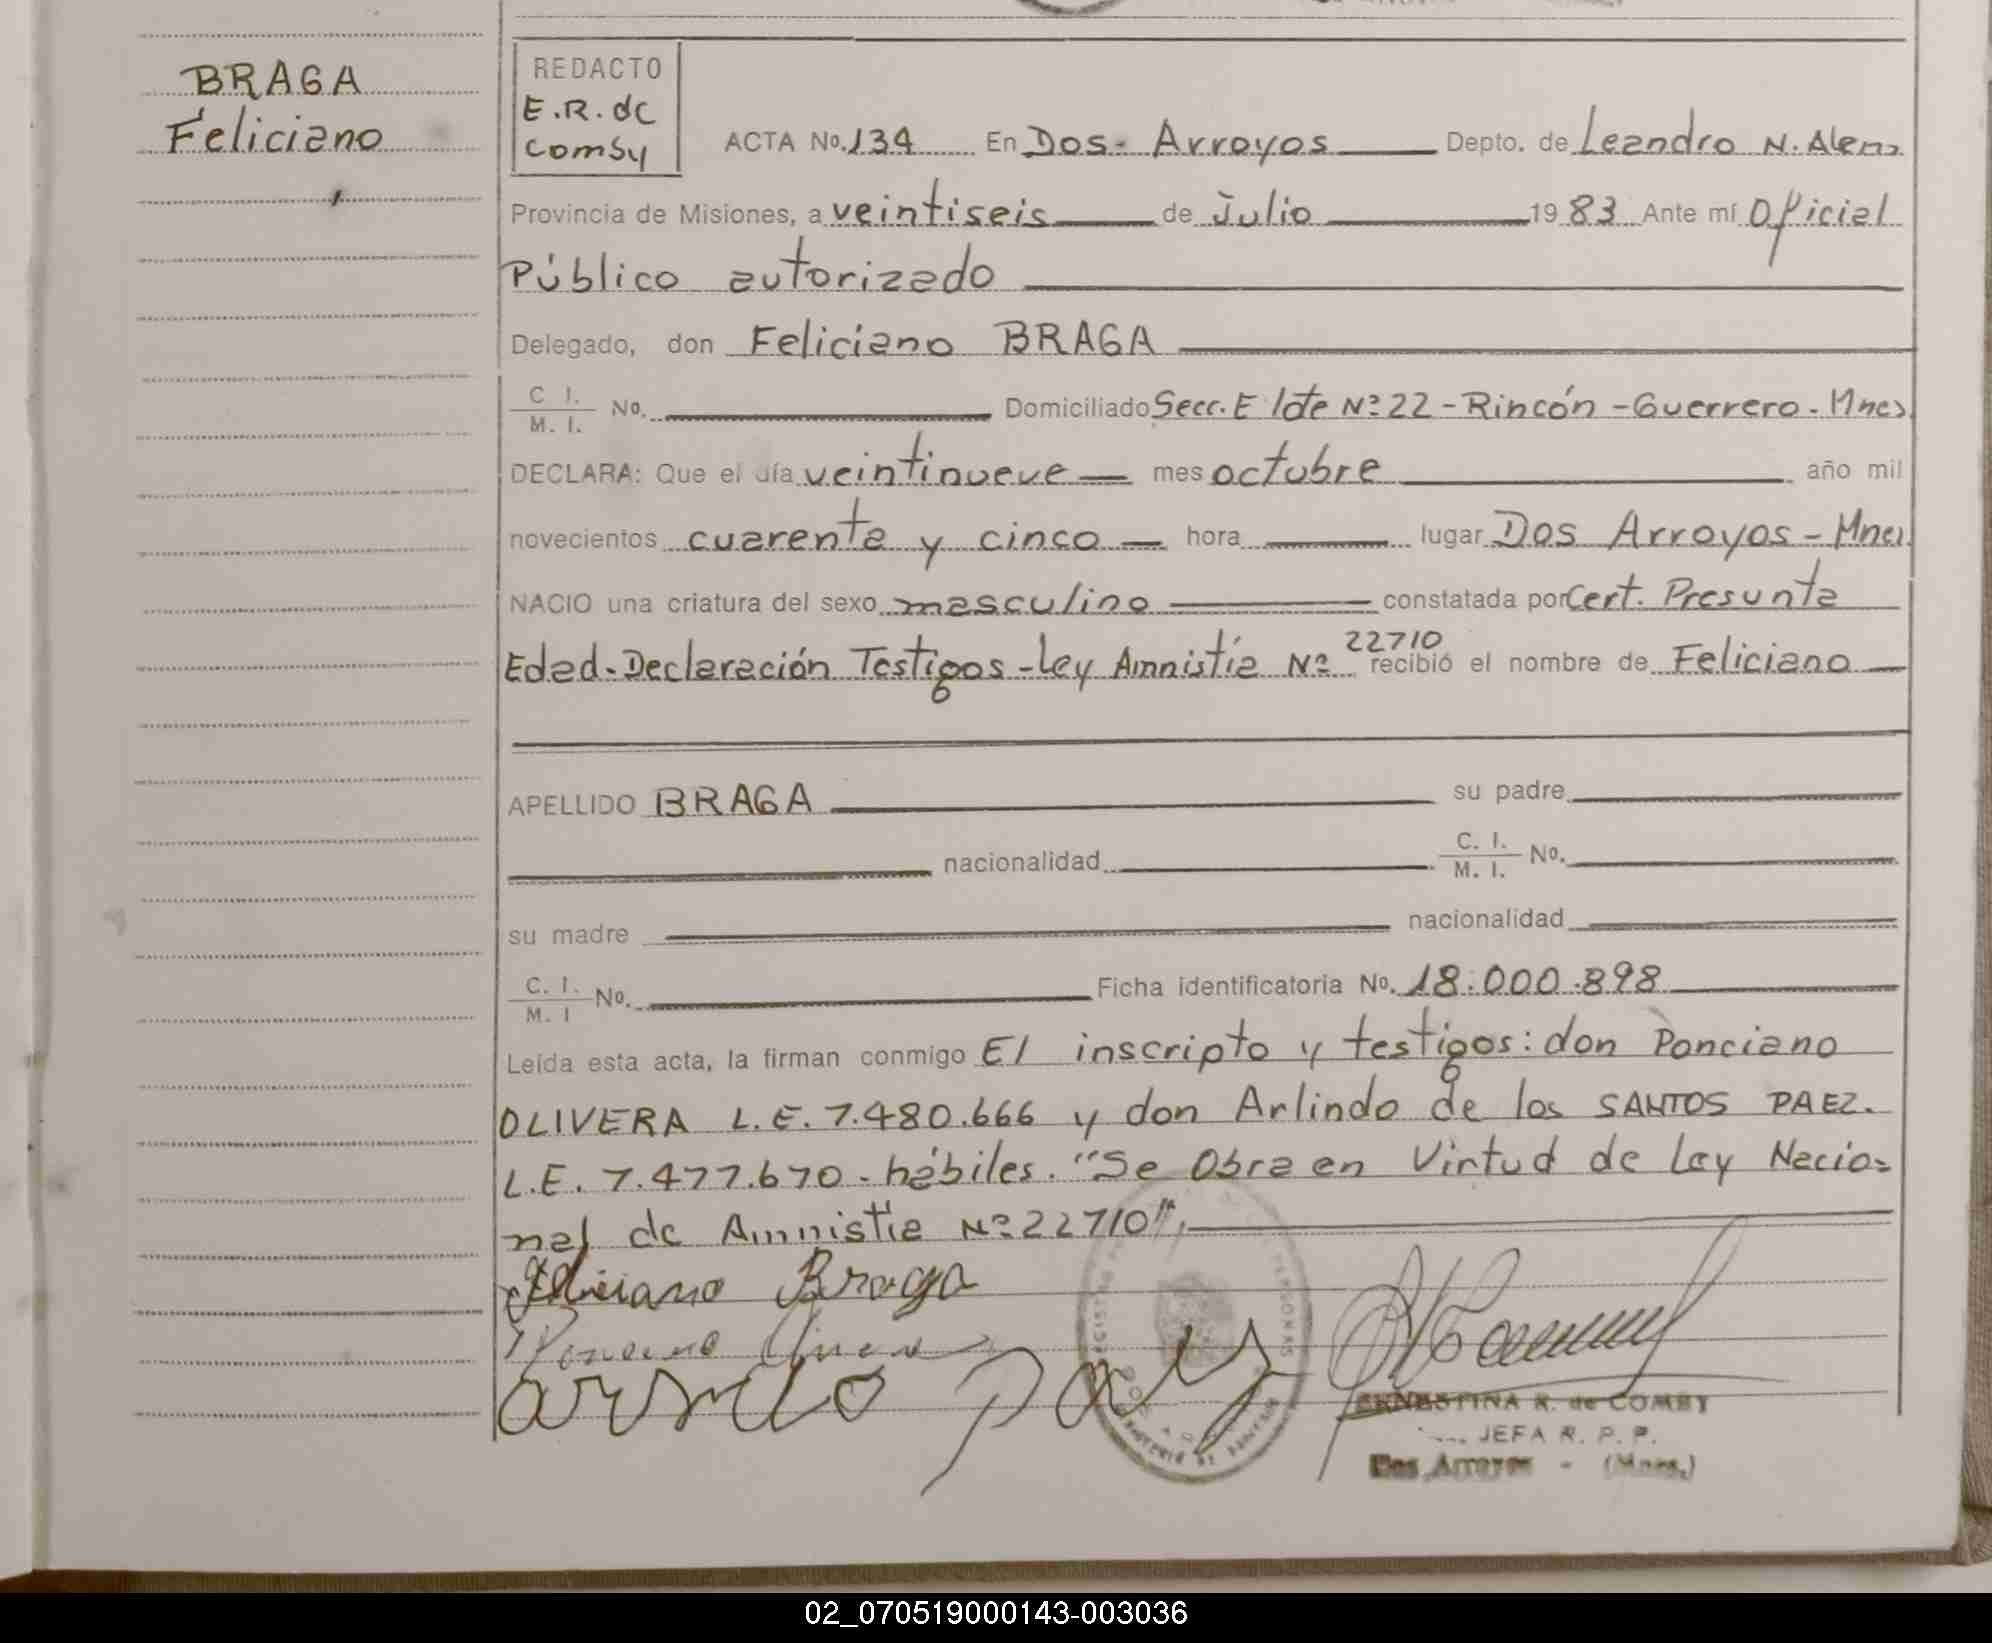 BRAGA
Feliciano
REDACTO
E.R. de
Comby
ACTA No. 134 En Dos-Arroyos Depto. de Leandro N. Alem
Provincia de Misiones, a veintiseis de Julio 1983 Ante mí Oficial
Público autorizado
Delegado, don Feliciano BRAGA
C I. M. I. No. Domiciliado Secc. E lote Nº 22 - Rincón - Guerrero - Mnes
DECLARA: Que el día veintinueve mes octubre año mil
novecientos cuarenta y cinco hora lugar Dos Arroyos - Mnes
NACIO una criatura del sexo masculino constatada por Cert. Presunta
Edad - Declaración Testigos - Ley Amnistía Nº 22710 recibió el nombre de Feliciano
APELLIDO BRAGA su padre
nacionalidad C. I. M. I. No.
su madre nacionalidad
C. I. M. I No. Ficha identificatoria No. 18.000.898
Leída esta acta, la firman conmigo El inscripto y testigos: don Ponciano
OLIVERA L.E. 7.480.666 y don Arlindo de los SANTOS PAEZ.
L.E. 7.477.670 - hábiles. "Se Obra en Virtud de Ley Nacio=
nal de Amnistía Nº 22710".
Feliciano Braga
ERNESTINA R. de COMBY
JEFA R. P. P.
Dos Arroyos - (Mnes.)
02_070519000143-003036